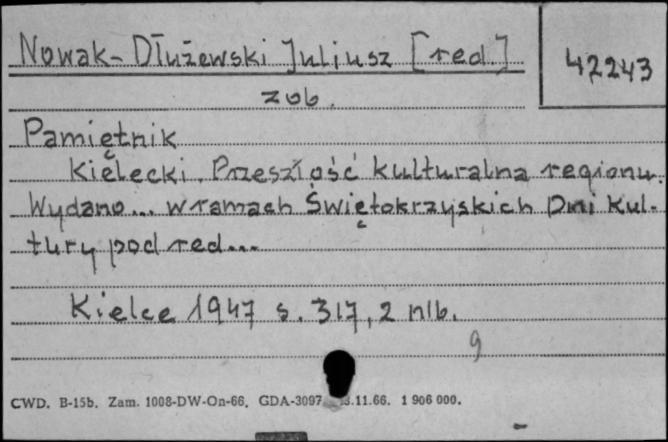 Nowak-Dłużewski Juliusz [red.]
42243
zob.
Pamiętnik
Kielecki. Przeszłość kulturalna regionu.
Wydano... w ramach Świętokrzyskich Dni Kul-
tury pod red...
Kielce 1947 s. 317, 2 nlb.
9
CWD. B-15b. Zam. 1008-DW-On-66. GDA-3097 .11.66. 1 906 000.